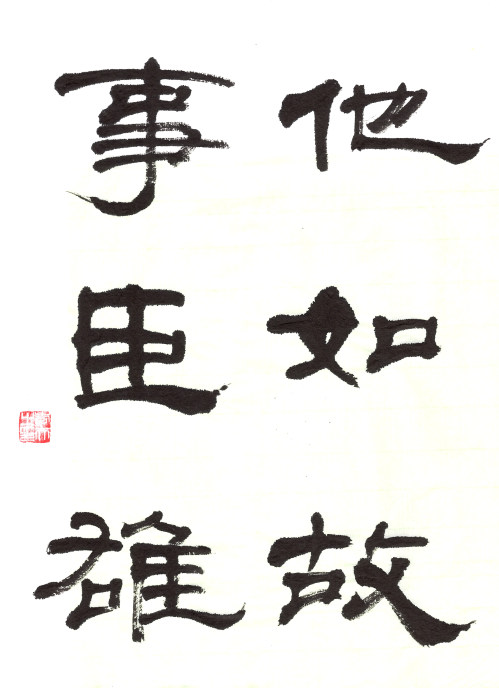 他如故
事臣雄